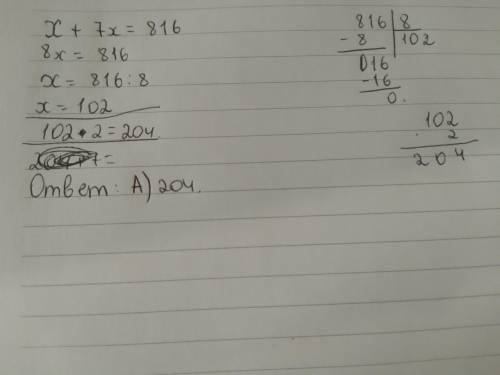 x + 7x = 816
8x = 816
x = 816 : 8
x = 102
102 • 2 = 204
7 =
Ответ: А) 204.
816 | 8
- 8 | 102
016
-16
0.
102
· 2
204